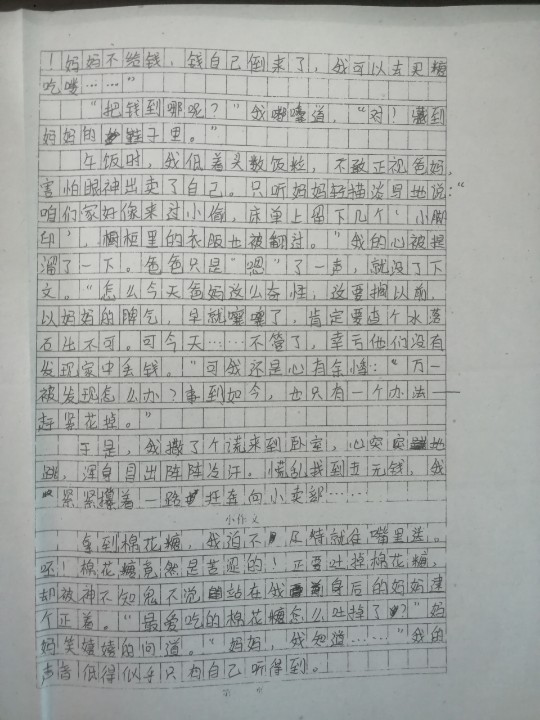 ！妈妈不给钱，钱自己倒来了，我可以去买糖
吃喽……”
“把钱到哪呢？”我嘟囔道，“对！藏到
妈妈的鞋子里。”
午饭时，我低着头数饭粒，不敢正视爸妈，
害怕眼神出卖了自己。只听妈妈轻描淡写地说：“
咱们家好像来过小偷，床单上留下几个‘小脚
印’，橱柜里的衣服也被翻过。”我的心被提
溜了一下。爸爸只是“嗯”了一声，就没了下
文。“怎么今天爸妈这么奇怪，这要搁以前，
以妈妈的脾气，早就嘿嘿了，肯定要查个水落
石出不可。可今天……不管了，幸亏他们没有
发现家中丢钱。”可我还是心有余悸：“万一
被发现怎么办？事到如今，也只有一个办法——
赶紧花掉。”
于是，我撒了个谎来到卧室，心突突地
跳，浑身冒出阵阵冷汗。慌乱找到五元钱，我
紧紧攥着一路狂奔向小卖部……
小作文
拿到棉花糖，我迫不及待就往嘴里送。
呸！棉花糖竟然是苦涩的！正要吐掉棉花糖，
却被神不知鬼不觉站在我身后的妈妈逮
个正着。“最爱吃的棉花糖怎么吐掉了？”妈
妈笑嘻嘻的问道。“妈妈，我知道……”我的
声音低得似乎只有自己听得到。
第